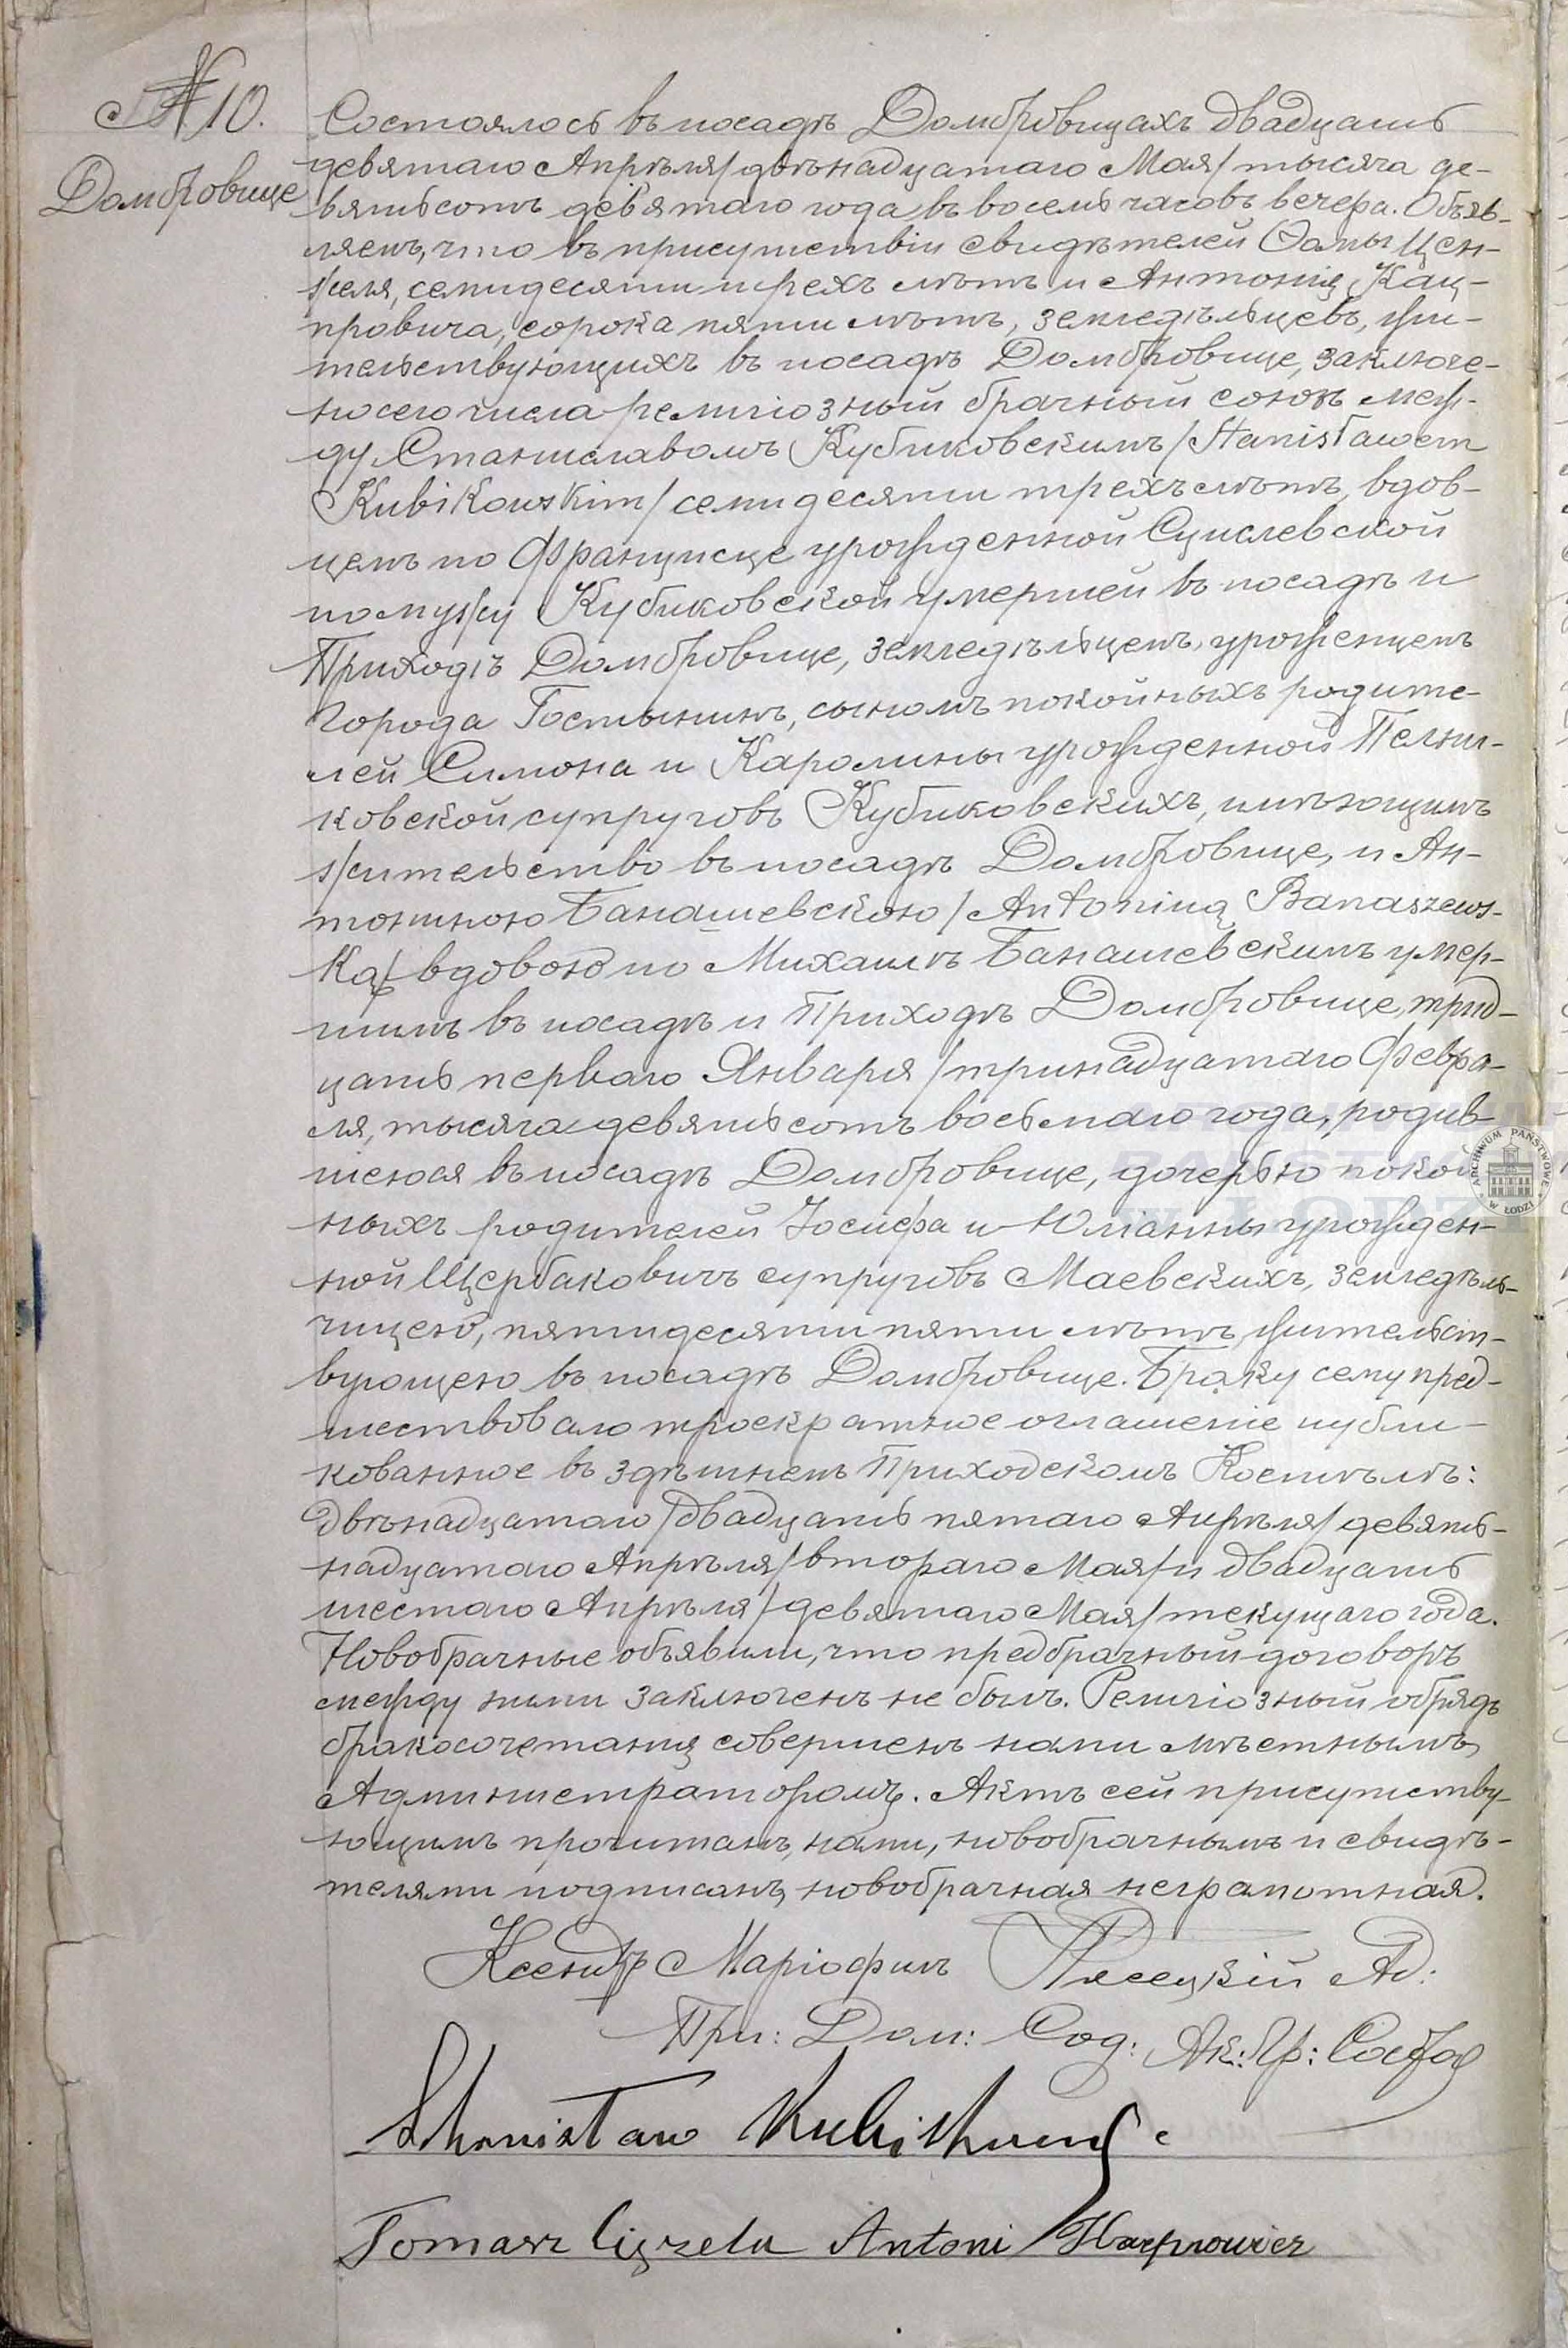 № 10.
Домбровице
Состоялось въ посадѣ Домбровицахъ двадцать
девятаго Апрѣля/двѣнадцатаго Мая/тысяча де-
вятьсотъ девятаго года въ восемь часовъ вечера. Объяв-
ляемъ, что въ присутствіи свидѣтелей Ѳомы Цен-
желя, семидесяти трехъ лѣтъ и Антонія Кац-
провича, сорока пяти лѣтъ, земледѣльцевъ, жи-
тельствующихъ въ посадѣ Домбровице, заключе-
но сего числа религіозный брачный союзъ меж-
ду Станиславомъ Кубиковскимъ/Stanisławem
Kubikowskim/семидесяти трехъ лѣтъ, вдов-
цемъ по Францисце урожденной Суислевской
по мужу Кубиковской умершей въ посадѣ и
Приходѣ Домбровице, земледѣльцемъ, уроженцемъ
Города Гостынинъ, сыномъ покойныхъ родите-
лей Симона и Каролины урожденной Пельни-
ковской супруговъ Кубиковскихъ, имѣющимъ
жительство въ посадѣ Домбровице, и Ан-
тониною Банашевскою/Antoniną Banaszews-
ką/вдовою по Михаилѣ Банашевскимъ умер-
шимъ въ посадѣ и Приходѣ Домбровице, трид-
цать перваго Января/тринадцатаго Февра-
ля, тысяча девятьсотъ восьмаго года, родив-
шеюся въ посадѣ Домбровице, дочерью покой-
ныхъ родителей Іосифа и Юліанны урожден-
ной Щербаковичъ супруговъ Маевскихъ, земледѣль-
чицею, пятидесяти пяти лѣтъ, жительст-
вующею въ посадѣ Домбровице. Браку сему пред-
шествовало троекратное оглашеніе публи-
кованное въ здѣшнемъ Приходскомъ Костѣлѣ:
двѣнадцатаго/двадцать пятаго Апрѣля/девять-
надцатаго Апрѣля/втораго Мая/и двадцать
шестаго Апрѣля/девятаго Мая/текущаго года.
Новобрачные объявили, что предбрачный договоръ
между ними заключенъ не былъ. Религіозный обрядъ
бракосочетанія совершенъ нами мѣстнымъ
Администраторомъ. Актъ сей присутству-
ющимъ прочитанъ, нами, новобрачнымъ и свидѣ-
телями подписанъ, новобрачная неграмотная.
Ксендзъ Маріофилъ Пясецкій Ад:
При: Дом: Сод: Ак: Гр: Сост
Stanisław Kubikowski
Tomasz Cięzela Antoni Kacprowicz
ARCHIWUM PAŃSTWOWE W ŁODZI